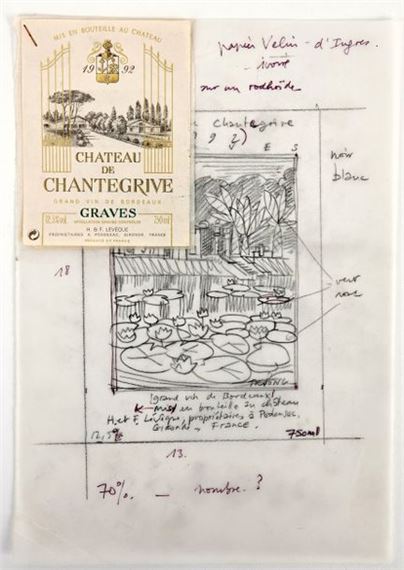 papier Velin - d'Ingres.
- ivoire
sur un rodhoïde
MIS EN BOUTEILLE AU CHATEAU
19 92
CHATEAU
DE
CHANTEGRIVE
GRAND VIN DE BORDEAUX
GRAVES
12,5% vol
APPELLATION GRAVES CONTRÔLÉE
750 ml
H. & F. LEVEQUE
PROPRIETAIRES A PODENSAC, GIRONDE, FRANCE
PRODUCE OF FRANCE
Chantegrive
9 9 2)
V E S
noir
blanc
18
vert
rose
TRUONG
(grand vin de Bordeaux)
mis en bouteille au château
H. et F. Lévêque, propriétaires à Podensac,
Gironde, France.
12,5%
750ml
13.
70%. - nombre. ?